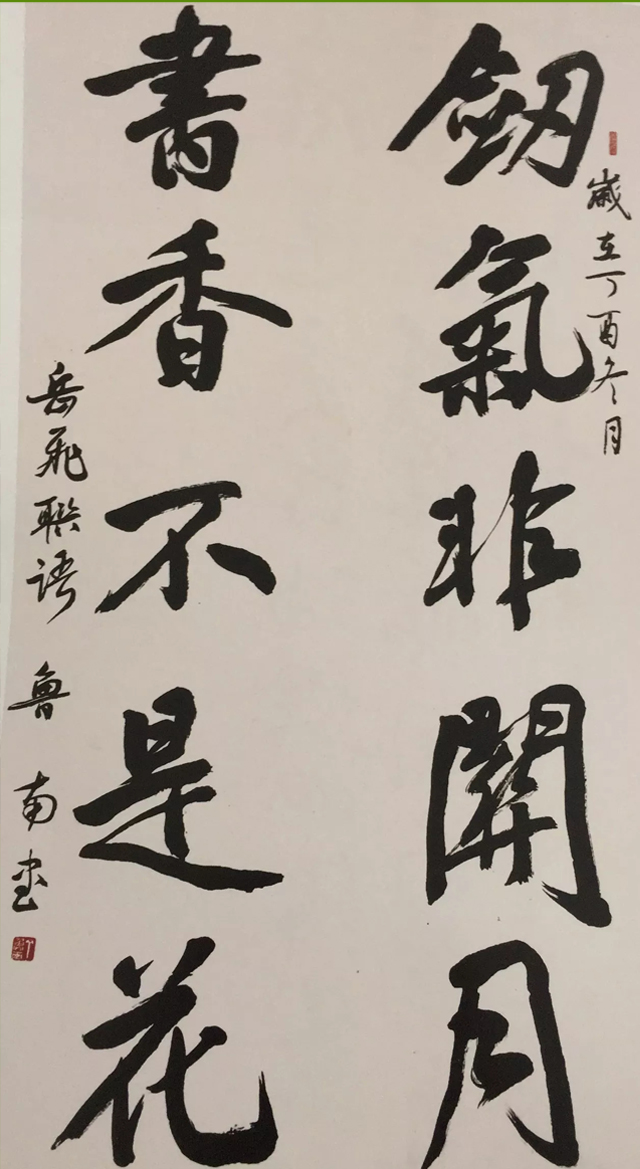 歲在丁酉冬月
劔氣非關月
書香不是花
岳飛聯語 魯南書